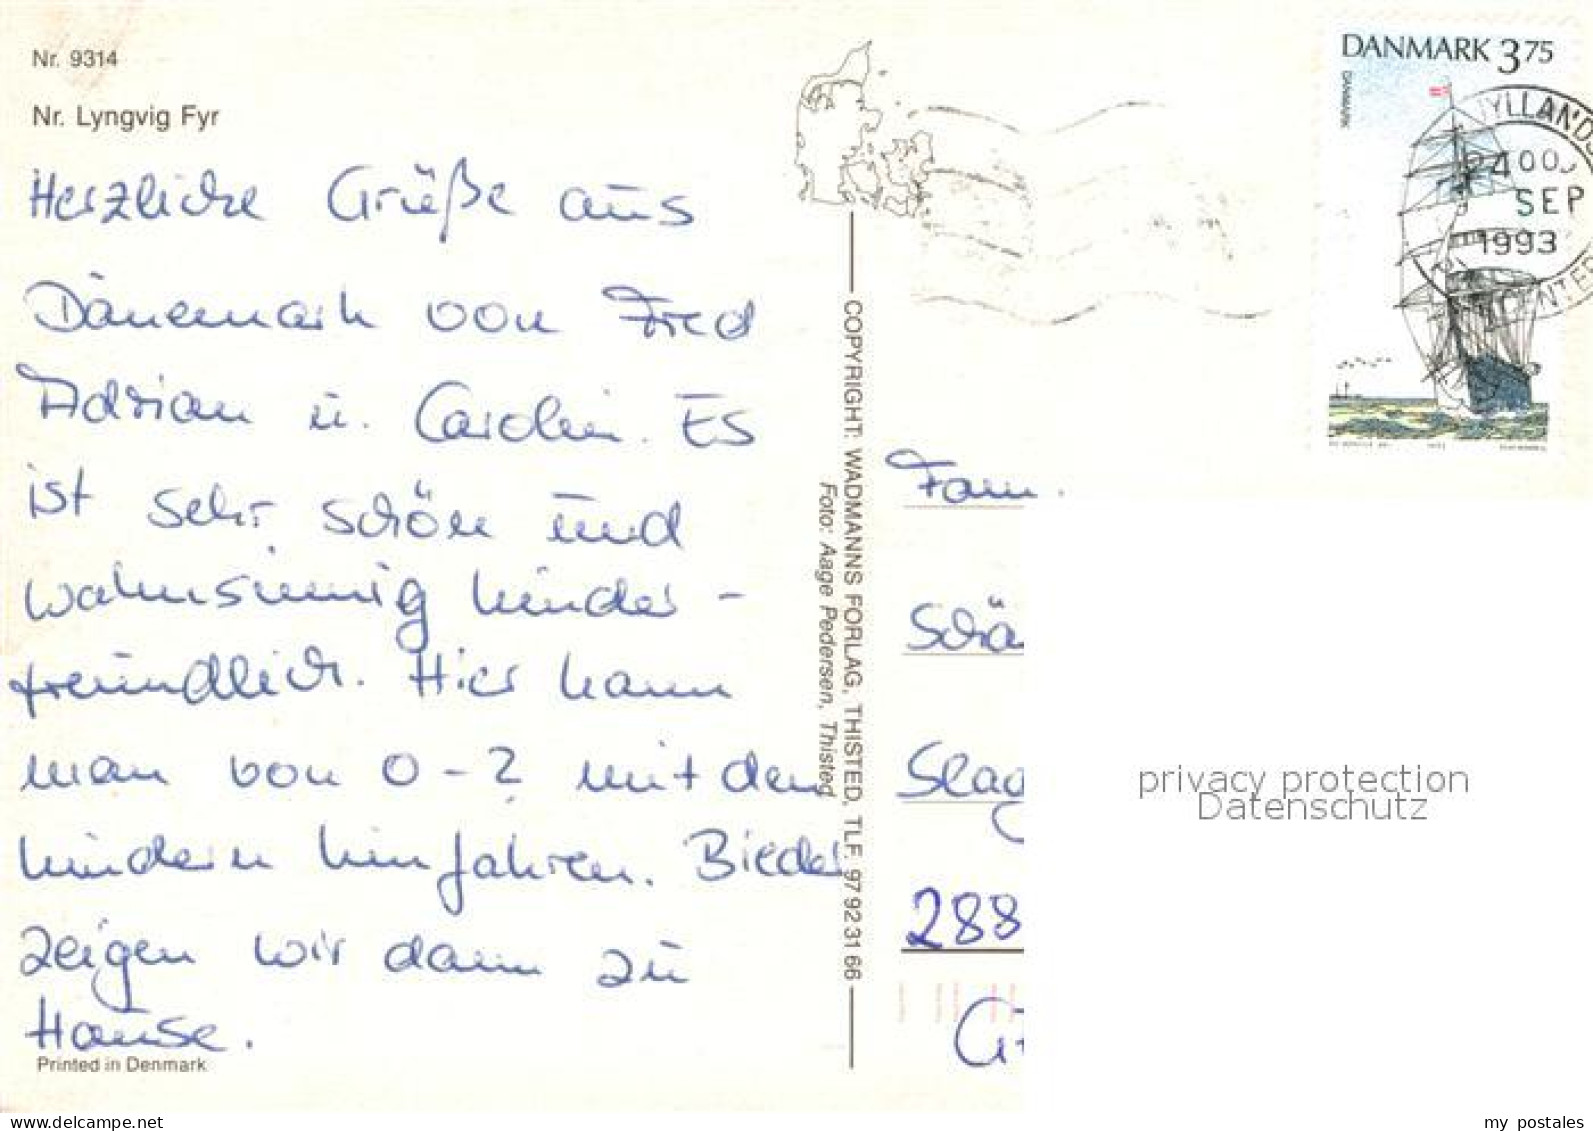 Nr. 9314
Nr. Lyngvig Fyr
Herzliche Grüße aus
Dänemark von Fred
Adrian u. Carolin. Es
ist sehr schön und
wahnsinnig kinder-
freundlich. Hier kann
man von 0-? mit den
Kindern hinfahren. Bieder
zeigen wir dann zu
Hause.
Printed in Denmark
COPYRIGHT: WADMANNS FORLAG, THISTED, TLF. 97 92 31 66
Foto: Aage Pedersen, Thisted
DANMARK 3.75
DANMARK
YLLANDS
24 00
SEP
1993
CENTER
Fam.
Schä
Slag
288
privacy protection
Datenschutz
my postales